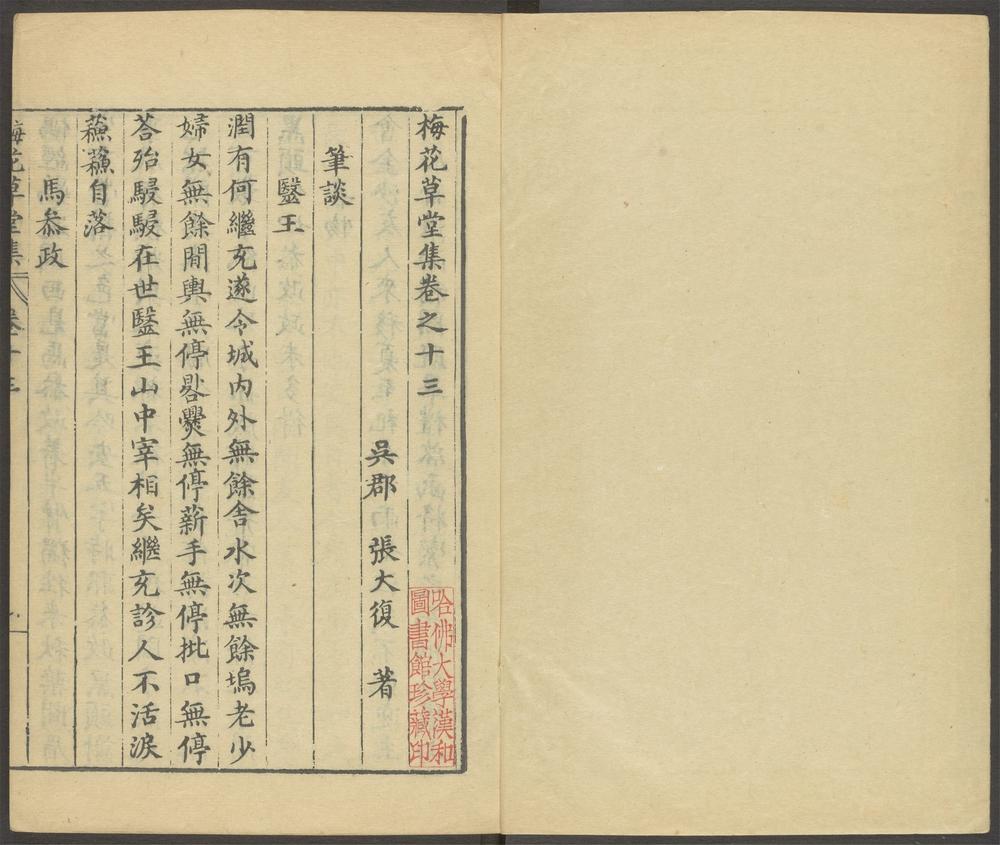 梅花草堂集卷之十三
吳郡 張大復 著
筆談
毉王
潤有何繼充遂令城内外無餘舎水次無餘塢老少
婦女無餘間輿無停晷爨無停薪手無停批口無停
荅殆駸駸在世毉王山中宰相矣繼充診人不活淚
蘓蘓自落
馬叅政
梅花草堂集 卷十三
哈佛大學漢和
圖書館珍藏印